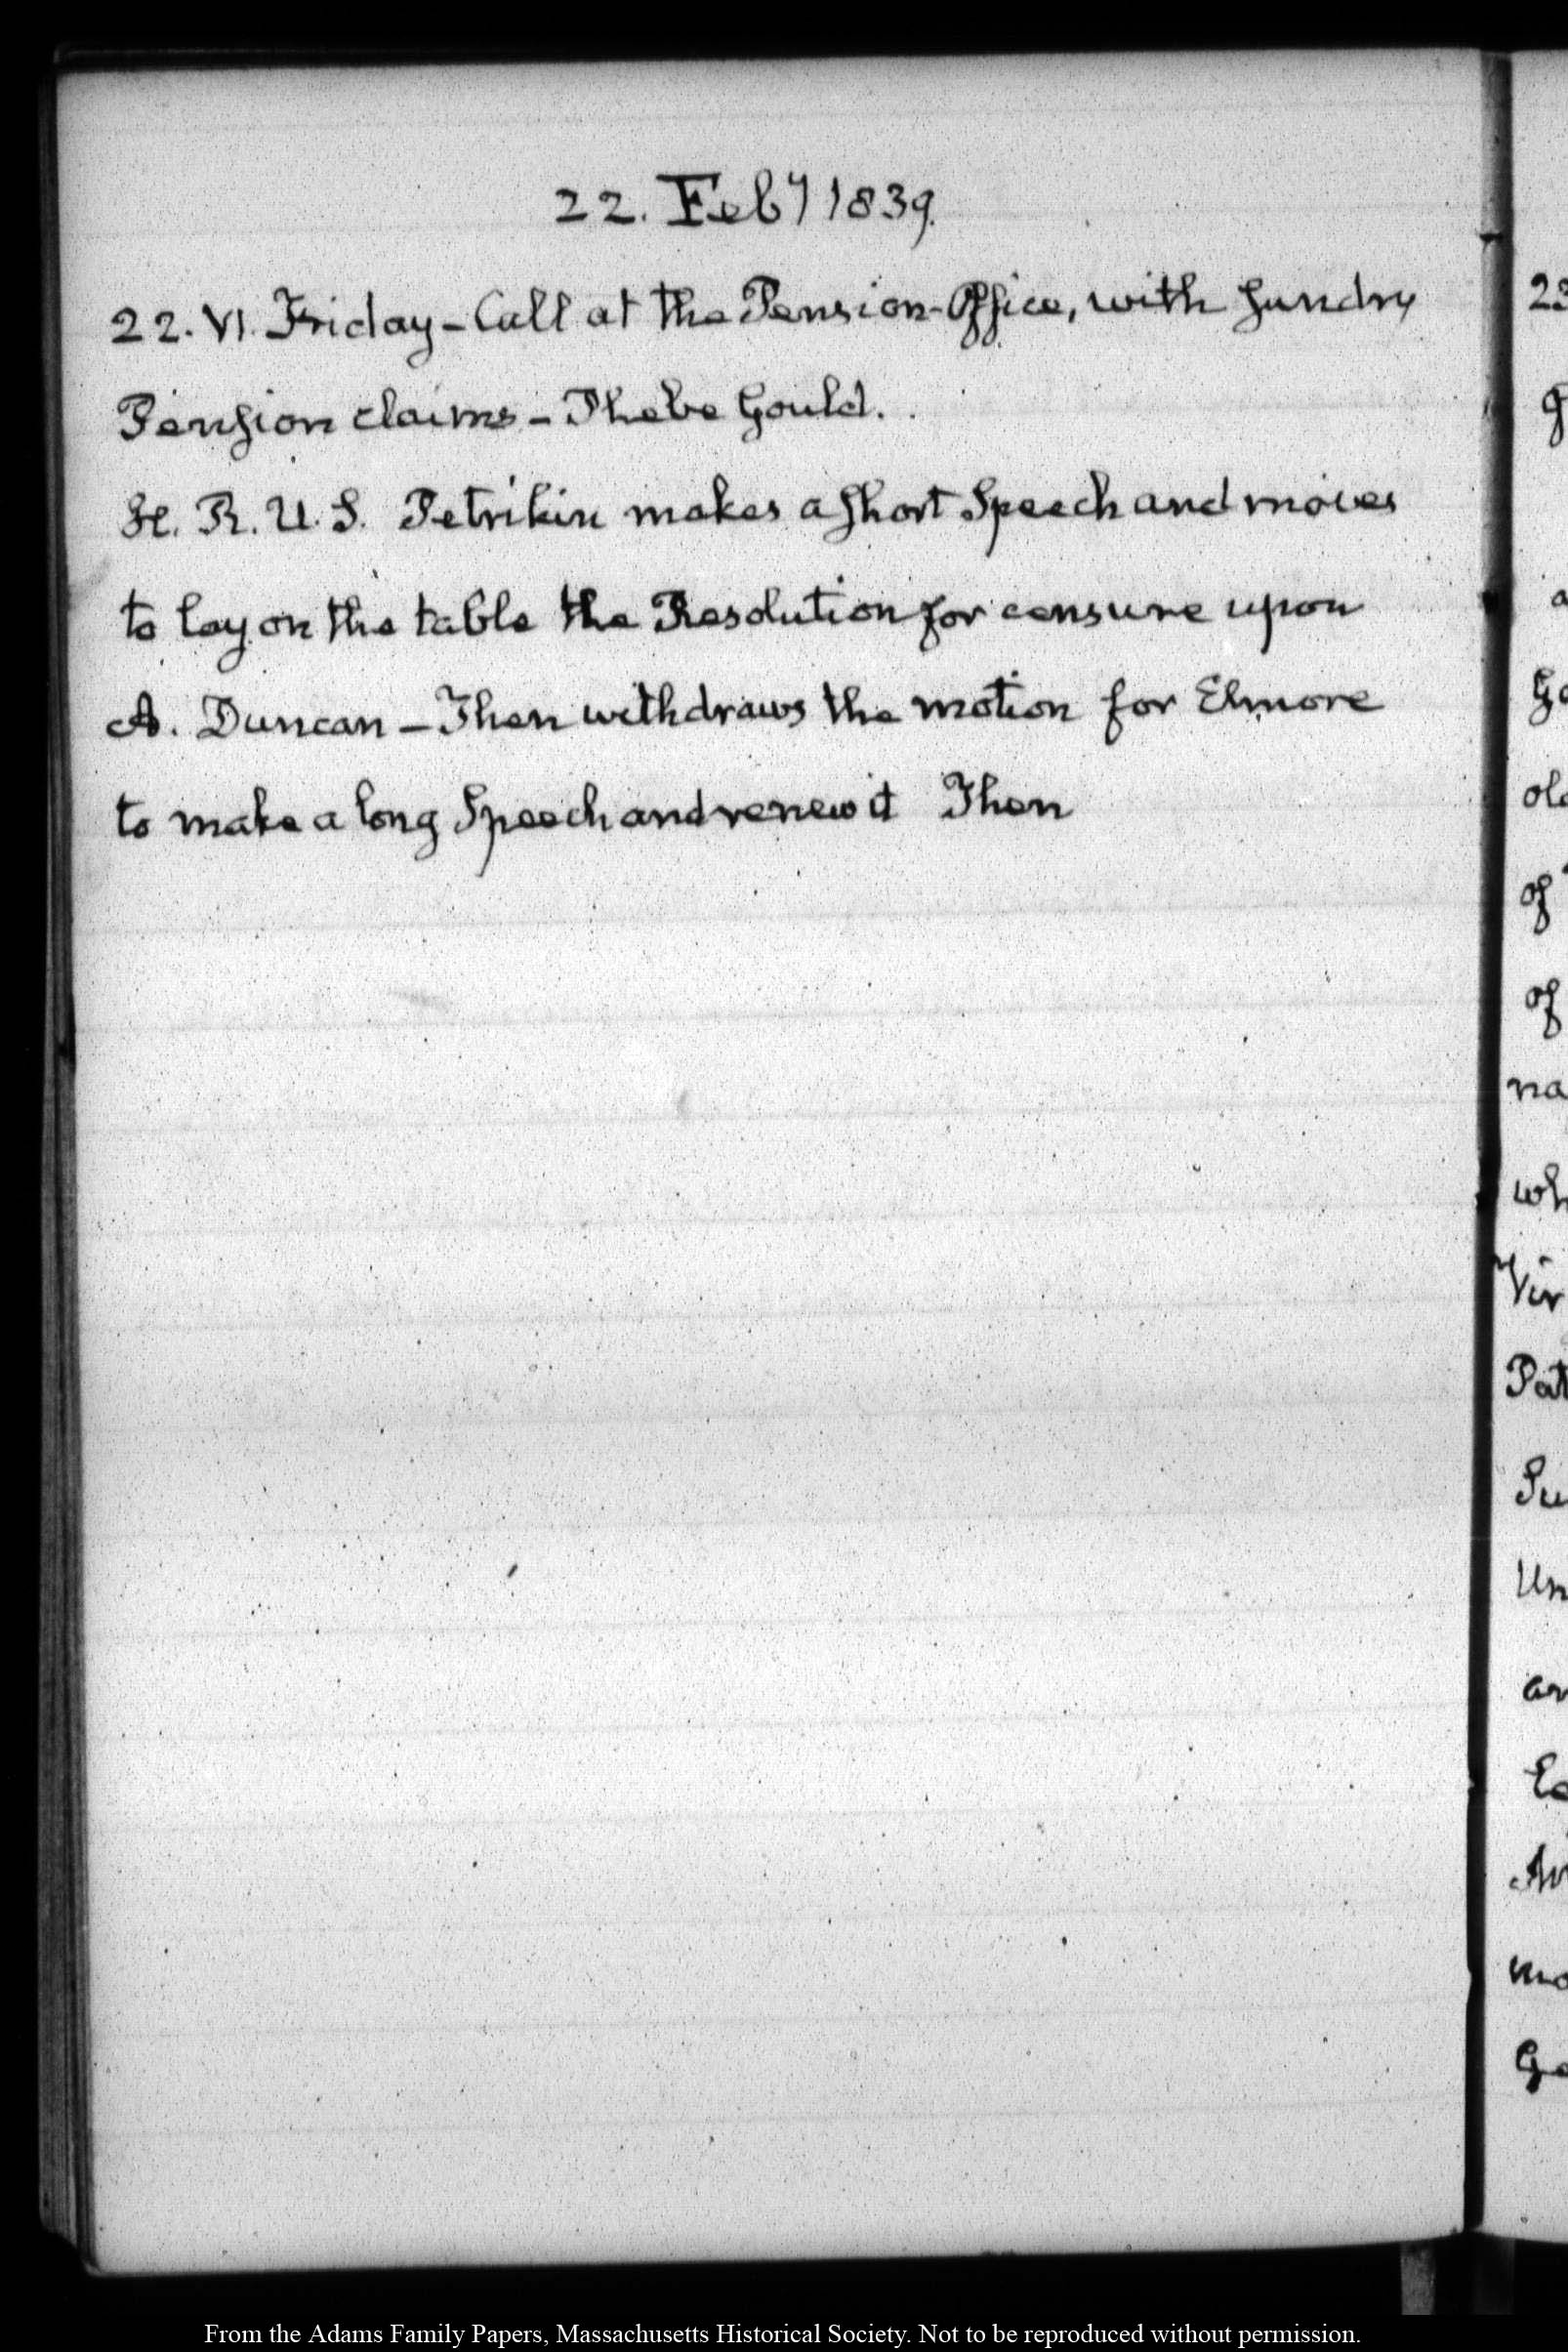 22. Feby 1839.
22. VI. Friday - Call at the Pension-Office, with sundry
Pension claims - Phebe Gould.
H. R. U. S. Petrikin makes a short Speech and moves
to lay on the table the Resolution for censure upon
A. Duncan - Then withdraws the motion for Elmore
to make a long Speech and renew it Then
From the Adams Family Papers, Massachusetts Historical Society. Not to be reproduced without permission.